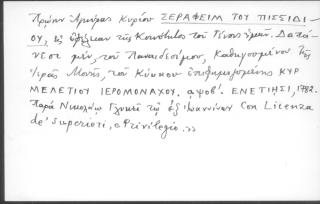 Πρώην Ἀγκύρας Κυρίου ΣΕΡΑΦΕΙΜ ΤΟΥ ΠΙΣΣΙΔΙ-
ΟΥ, εἰς ὠφέλειαν τῆς Κοινότητος τοῦ Γένους ἡμῶν. Δαπά-
νῃ μὲν, τοῦ Πανοσιολ., Καθηγουμένου τῆς
Ἱερᾶς Μονῆς, τοῦ Κύκκου ἐπιφημιζομένης ΚΥΡ
ΜΕΛΕΤΙΟΥ ΙΕΡΟΜΟΝΑΧΟΥ. αψπβ'. ΕΝΕΤΙΗΣΙ, 1782.
Παρὰ Νικολάῳ Γλυκεῖ τῷ ἐξ Ἰωαννίνων Con Licenza
de' Superiori, e Privilegio.»